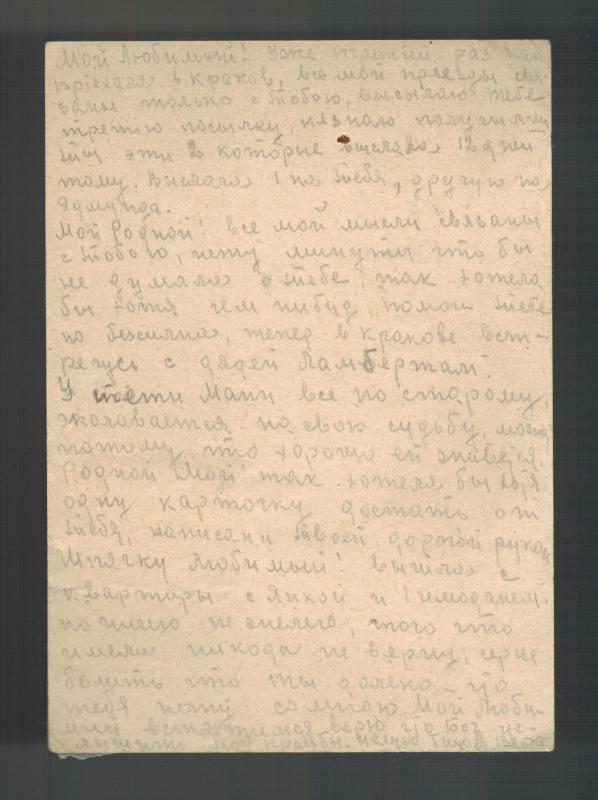 Мой Любимый! Уже третий раз
приехала в краков, все мои приезды свя-
заны только с тобою, высылаю тебе
третию посылку, незнаю получил ли
ты эти 2 которые выслала 12 дни
тому. выслала 1 на тебя, другую на
Мой Родной! все мои мысли связаны
с тобою, нету минуты что бы
не думала о тебе, так хотела
бы хотя чем нибуд помоч тебе
но безсилна, тепер в кракове вст-
речусь с дядей Ламбертам.
У тети Мани все по старому,
на свою судьбу, может
потому что хорошо ей
Родной Мой так хотела бы хотя
одну карточку достать от
тебя, написану твоей дорогой рукой
Любимый! вышла с
квартиры с Янкой и 1 чемоданем,
но ничего не того что
имела никода не верну, серце
болить что ты далеко что
тебя нету со мною Мой Люби-
мый встретимся верю что Бог ус-
лишит мои